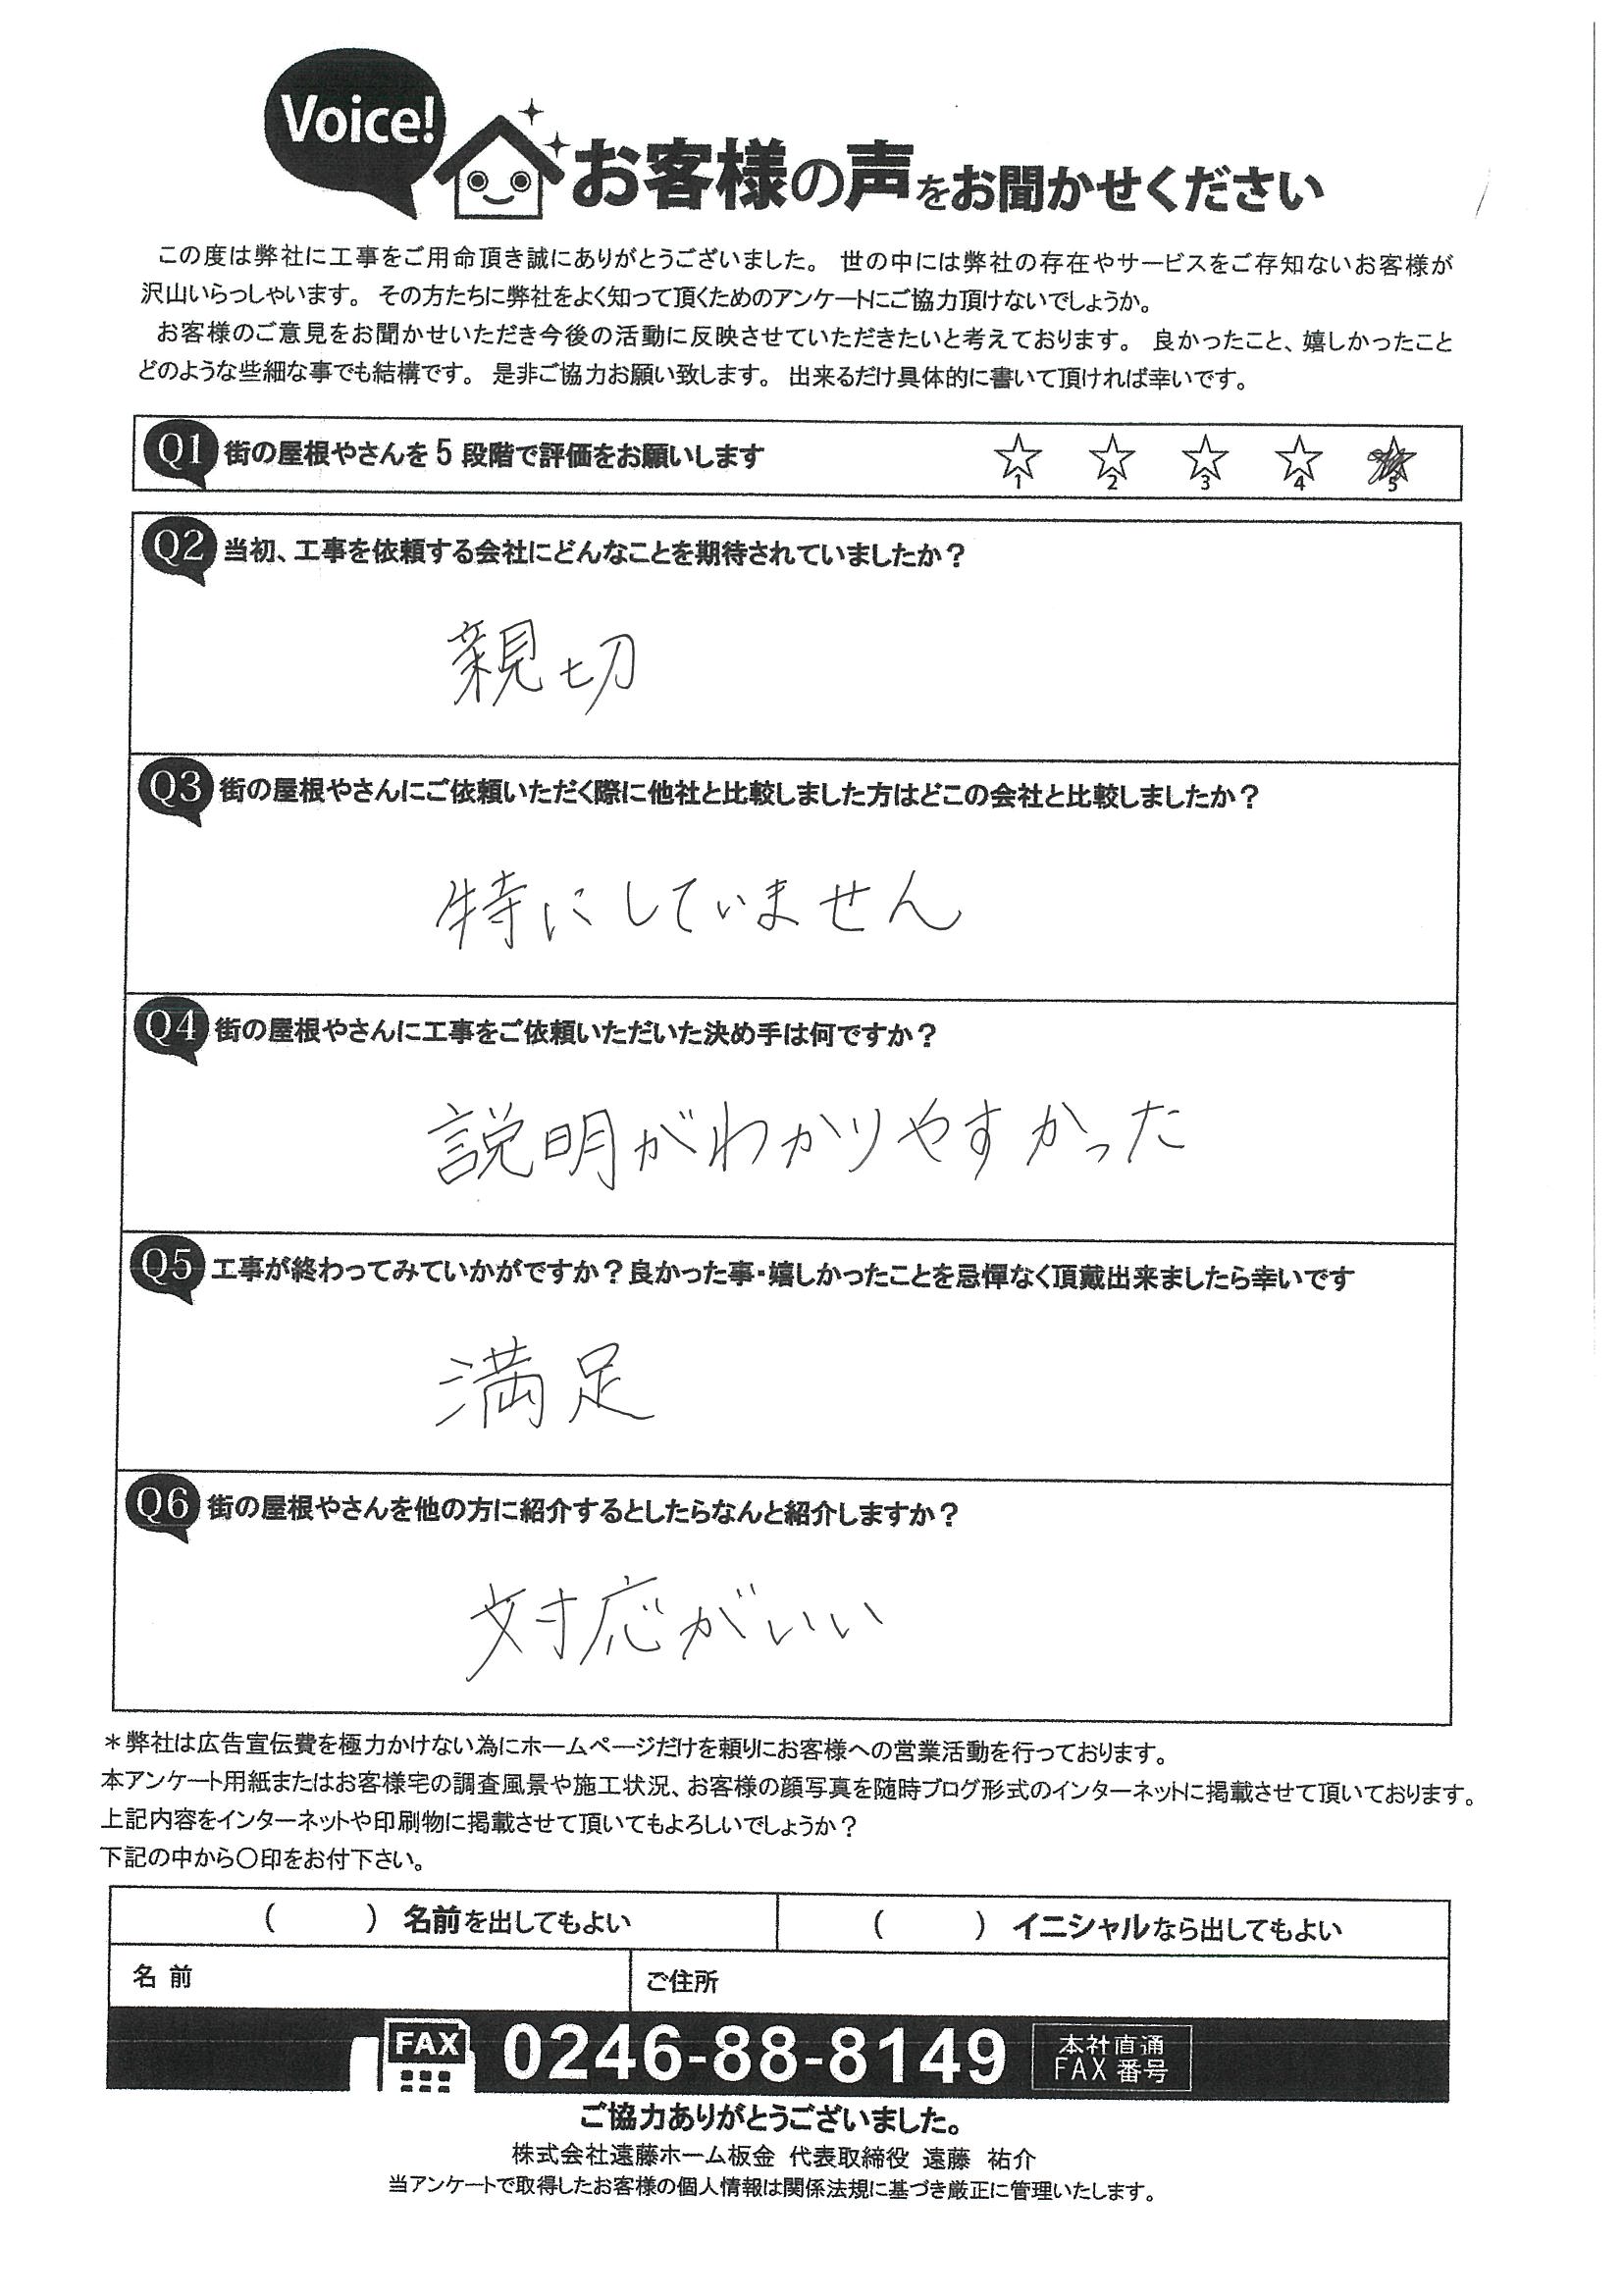 Voice!
お客様の声をお聞かせください
この度は弊社に工事をご用命頂き誠にありがとうございました。 世の中には弊社の存在やサービスをご存知ないお客様が
沢山いらっしゃいます。 その方たちに弊社をよく知って頂くためのアンケートにご協力頂けないでしょうか。
お客様のご意見をお聞かせいただき今後の活動に反映させていただきたいと考えております。 良かったこと、嬉しかったこと
どのような些細な事でも結構です。 是非ご協力お願い致します。 出来るだけ具体的に書いて頂ければ幸いです。
Q1 街の屋根やさんを5段階で評価をお願いします ☆1 ☆2 ☆3 ☆4 ★5
Q2 当初、工事を依頼する会社にどんなことを期待されていましたか？
親切
Q3 街の屋根やさんにご依頼いただく際に他社と比較しました方はどこの会社と比較しましたか？
特にしていません
Q4 街の屋根やさんに工事をご依頼いただいた決め手は何ですか？
説明がわかりやすかった
Q5 工事が終わってみていかがですか？良かった事・嬉しかったことを忌憚なく頂戴出来ましたら幸いです
満足
Q6 街の屋根やさんを他の方に紹介するとしたらなんと紹介しますか？
対応がいい
＊弊社は広告宣伝費を極力かけない為にホームページだけを頼りにお客様への営業活動を行っております。
本アンケート用紙またはお客様宅の調査風景や施工状況、お客様の顔写真を随時ブログ形式のインターネットに掲載させて頂いております。
上記内容をインターネットや印刷物に掲載させて頂いてもよろしいでしょうか？
下記の中から〇印をお付下さい。
（　　）名前を出してもよい （　　）イニシャルなら出してもよい
名 前 ご住所
FAX 0246-88-8149 本社直通
FAX 番号
ご協力ありがとうございました。
株式会社遠藤ホーム板金 代表取締役 遠藤 祐介
当アンケートで取得したお客様の個人情報は関係法規に基づき厳正に管理いたします。